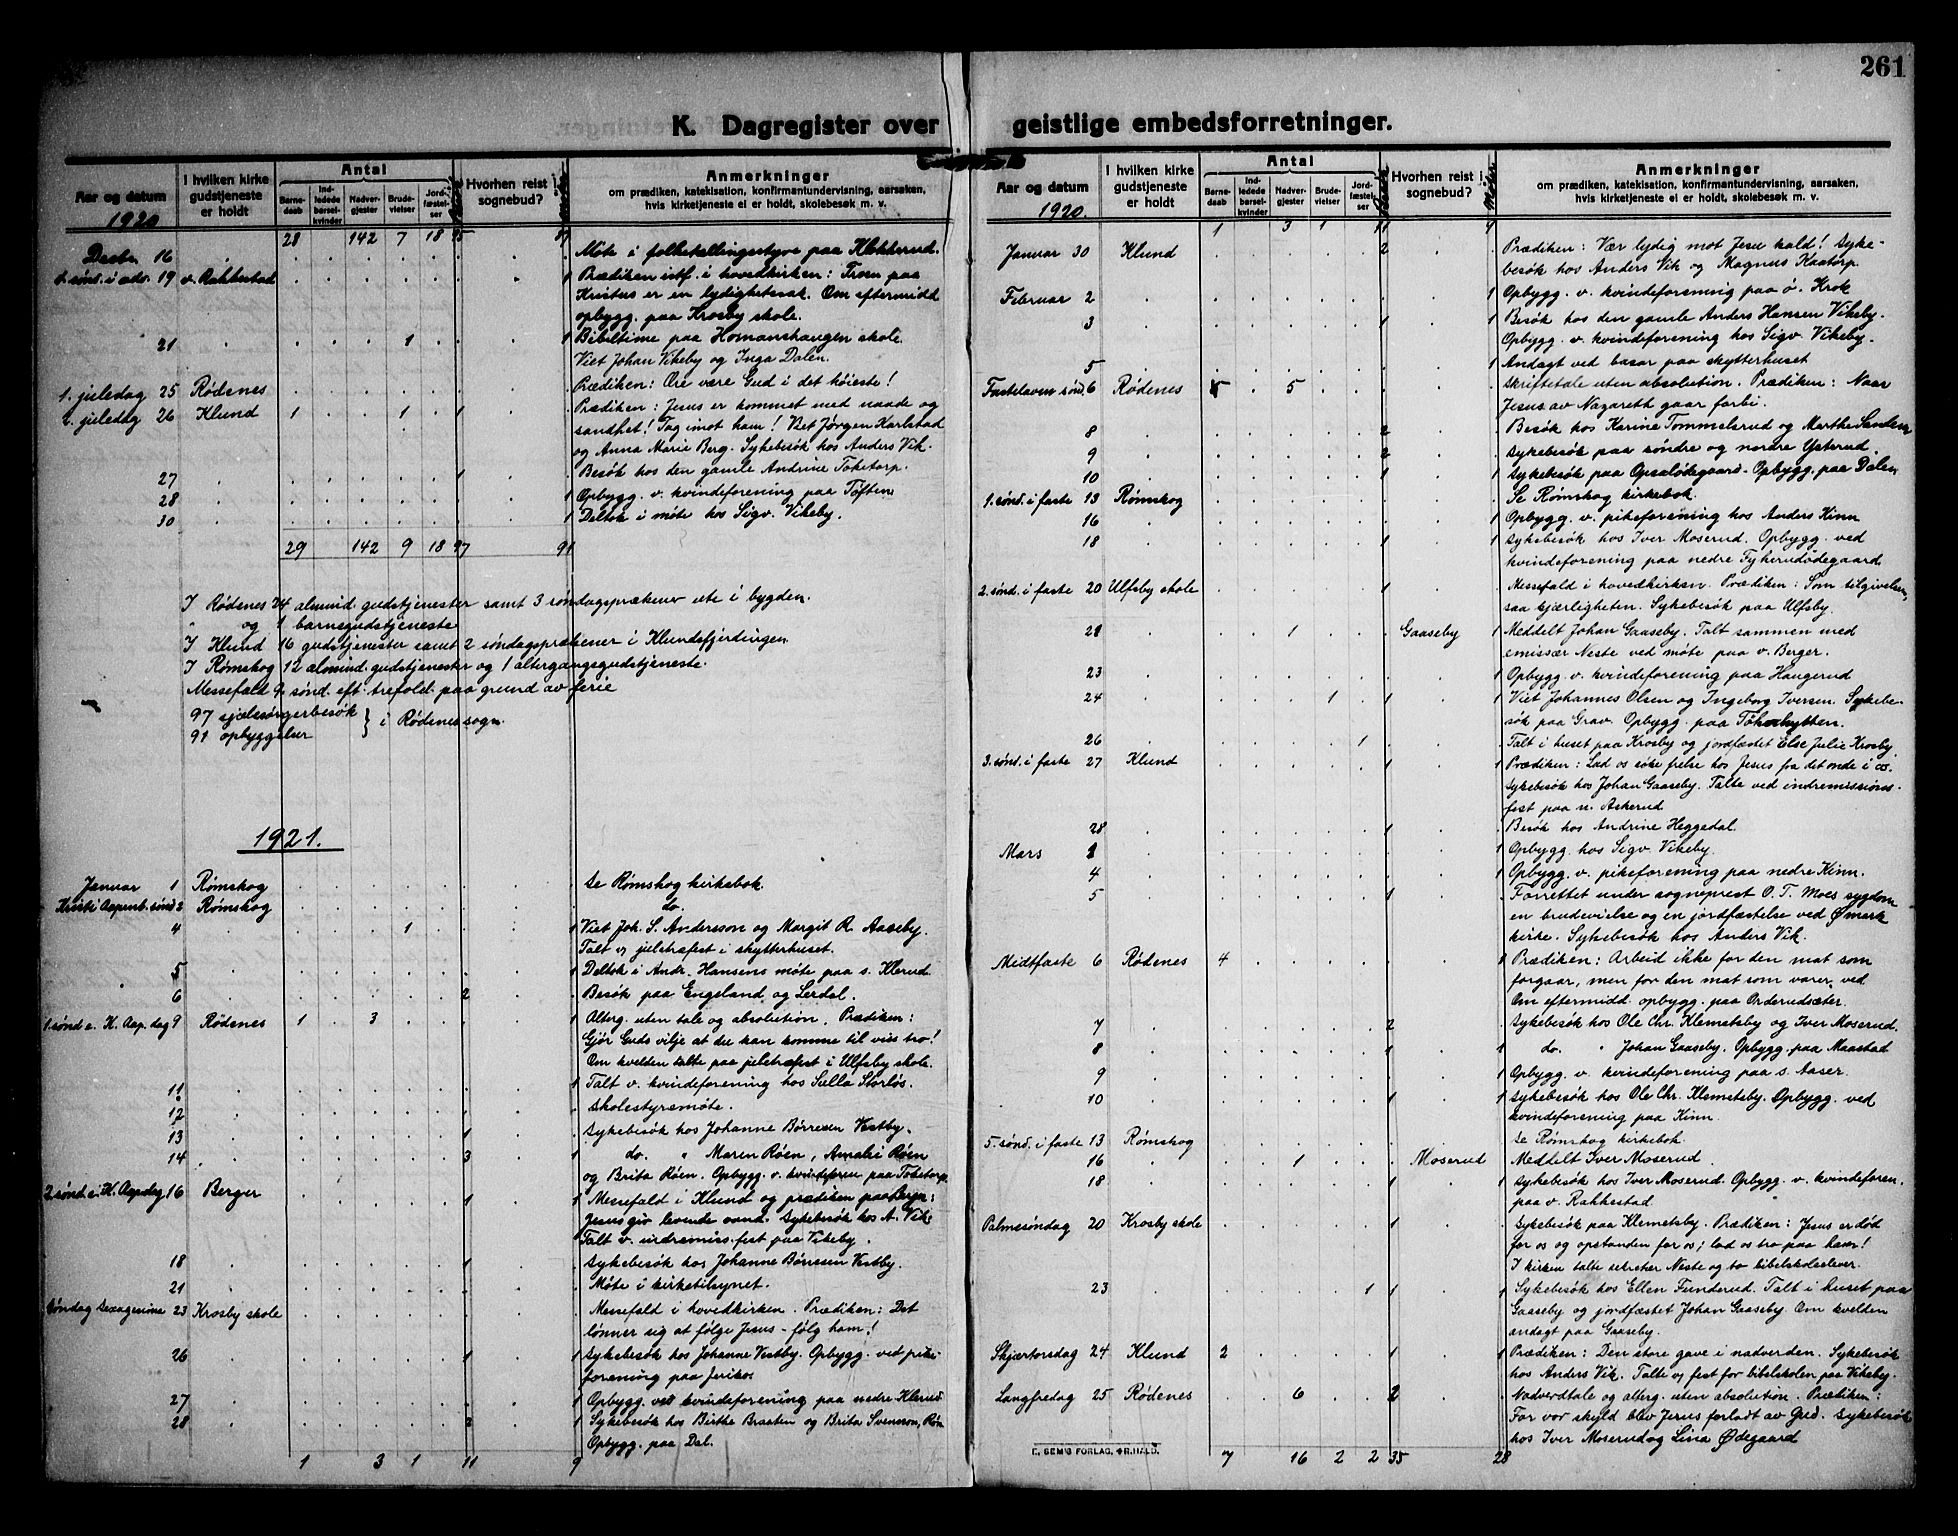 261
K. Dagregister over geistlige embedsforretninger.
Aar og datum
1920
I hvilken kirke gudstjeneste er holdt
Antal
Barnedaab
Indledede barselkvinder
Nadvergjester
Brudevielser
Jordfæstelser
Hvorhen reist i sognebud?
Anmerkninger
om prædiken, katekisation, konfirmantundervisning, aarsaken,
hvis kirketjeneste ei er holdt, skolebesøk m. v.
28 142 7 18 95
Decbr. 16 Møte i folketellingsstyre paa Klokkerud.
4. sønd. i adv. 19 v. Rakkestad 1 Prædiken istf. i hovedkirken: Troen paa
Kristus er en lydighetssak. Om eftermidd
opbygg. paa Krosby skole.
21 1 1 Bibeltime paa Homanshaugen skole.
Viet Johan Vikeby og Inga Dalen.
1. juledag 25 Rødenes Prædiken: Ære være Gud i det høieste!
2. juledag 26 Klund 1 1 1 Prædiken: Jesus er kommet med naade og
sandhet! Tag imot ham! Viet Jørgen Karlstad
og Anna Marie Berg. Sykebesøk hos Anders Vik.
27 1 Besøk hos den gamle Andrine Toketorp.
28 1 Opbygg. v. kvindeforening paa Tøften
30 1 Deltok i møte hos Sigv. Vikeby.
29 142 9 18 97 91
I Rødenes 24 almind. gudstjenester samt 3 søndagsprækener ute i bygden.
" og 1 barnegudstjeneste
I Klund 16 gudstjenester samt 2 søndagsprækener i Klundsfjerdingen
I Rømskog 12 almind. gudstjenester og 1 altergangsgudstjeneste.
Messefald 9. sønd. eft. trefold. paa grund av ferie
97 sjælesørgerbesøk
91 opbyggelser } i Rødenes sogn.
1921.
Januar 1 Rømskog Se Rømskog kirkebok.
Kristi Aapenb. sønd 2 Rømskog do.
4 1 1 Viet Joh. S. Andersson og Margit R. Aaseby.
Talt v. juletræfest i skytterhuset.
5 1 Deltok i Andr. Hansens møte paa s. Klerud.
6 2 Besøk paa Engeland og Lerdal.
1. sønd e. K. Aap. dag 9 Rødenes 1 3 1 Alterg. uten tale og absolution. Prædiken:
Gjør Guds vilje at du kan komme til viss tro!
Om kvelden talte paa juletræfest i Ulfsby skole.
11 1 Talt v. kvindeforening hos Sulla Storløs.
12 Skolestyremøte.
13 1 Sykebesøk hos Johanne Børresen Vestby.
14 3 1 do. " Maren Røen, Amalie Røen
og Brita Røen. Opbygg. v. kvindeforen paa Toketorp
2. sønd e. K. Aap dag 16 Berger 1 1 Messefald i Klund og prædiken paa Berger:
Jesus gir levende vand. Sykebesøk hos A. Vik.
Talt v. indremiss.fest paa Vikeby.
18 1 Sykebesøk hos Johanne Børresen Vestby.
21 Møte i kirketilsynet.
Søndag Sexagesima 23 Krosby skole Messefald i hovedkirken. Prædiken: Det
lønner sig at følge Jesus - følg ham!
26 1 1 Sykebesøk hos Johanne Vestby. Opbygg. ved pike-
forening paa Jeriko.
27 1 Opbygg. ved kvindeforening paa nedre Klerud.
28 2 1 Sykebesøk hos Birthe Braaten og Brita Svensson, Røn
Opbygg. paa Dal.
1 3 1 11 9
Aar og datum
1920.
I hvilken kirke gudstjeneste er holdt
Antal
Barnedaab
Indledede barselkvinder
Nadvergjester
Brudevielser
Jordfæstelser
Hvorhen reist i sognebud?
Anmerkninger
om prædiken, katekisation, konfirmantundervisning, aarsaken,
hvis kirketjeneste ei er holdt, skolebesøk m. v.
1 3 1 11 9
Januar 30 Klund 2 Prædiken: Vær lydig mot Jesu kald! Syke-
besøk hos Anders Vik og Magnus Kaatorp.
Februar 2 1 Opbygg. v. kvindeforening paa ø. Krok
3 1 1 Besøk hos den gamle Anders Hansen Vikeby.
Opbygg. v. kvindeforening hos Sigv. Vikeby.
5 1 Andagt ved basar paa skytterhuset
Fastelaven sønd. 6 Rødenes 5 5 Skriftetale uten absolution. Prædiken: Naar
Jesus av Nazareth gaar forbi.
8 2 Besøk hos Karine Tommelsrud og Merthe Sanden
9 2 Sykebesøk paa søndre og nordre Ysterud.
10 1 1 Sykebesøk paa Opsalødegaard. Opbygg. paa Dalen
1. sønd. i faste 13 Rømskog Se Rømskog kirkebok.
16 1 Opbygg. v. pikeforening hos Anders Kinn
18 1 1 Sykebesøk hos Iver Moserud. Opbygg. ved
kvindeforening paa nedre Fyherudødegaard
2. sønd. i faste 20 Ulfsby skole 1 Messefald i hovedkirken. Prædiken: Som tilgivelsen,
saa kjærligheten. Sykebesøk paa Ulfsby.
21 1 Gaaseby 1 Meddelt Johan Gaaseby. Talt sammen med
emissær Neste ved møte paa v. Berger.
23 1 Opbygg. v. kvindeforening paa Haugerud
24 1 1 1 Viet Johannes Olsen og Ingeborg Iversen. Sykebe-
søk paa Grav. Opbygg. paa
26 1 Talt i huset paa Krosby og jordfæstet Else Julie Krosby
3. sønd. i faste 27 Klund 1 1 Prædiken: Lad os søke frelse hos Jesus fra det onde i os.
Sykebesøk hos Johan Gaaseby. Talte ved indremissions-
fest paa n. Askerud
28 1 Besøk hos Andrine Heggedal.
Mars 1 1 Opbygg. hos Sigv. Vikeby.
4 1 Opbygg. v. pikeforening paa nedre Kinn.
5 1 Forrettet under sogneprest O. T. Moes sygdom
en brudevielse og en jordfæstelse ved Ømark
kirke. Sykebesøk hos Anders Vik.
Midtfaste 6 Rødenes 4 1 Prædiken: Arbeid ikke for den mat som
forgaar, men for den mat som varer ved
Om eftermidd. opbygg. paa Orderudsæter.
7 2 Sykebesøk hos Ole Chr. Klemetsby og Iver Moserud.
8 1 1 do. " Johan Gaaseby. Opbygg. paa Maastad
9 1 Opbygg. v. kvindeforening paa s. Aaser.
10 1 1 Sykebesøk hos Ole Chr. Klemetsby. Opbygg. ved
kvindeforening paa Kinn.
5. sønd. i faste 13 Rømskog Se Rømskog kirkebok.
16 1 Moserud Meddelt Iver Moserud.
18 1 1 Sykebesøk hos Iver Moserud. Opbygg. v. kvindeforen.
paa v. Rakkestad
Palmesøndag 20 Krosby skole 1 Sykebesøk paa Klemetsby. Prædiken: Jesus er død
for os og opstanden for os; lad os tro paa ham!
I kirken talte sekretær Neste og to bibelskoleelever.
23 1 1 1 Sykebesøk hos Ellen Funderud. Talt i huset paa
Gaaseby og jordfæstet Johan Gaaseby. Om kvelden
andagt paa Gaaseby.
Skjærtorsdag 24 Klund 2 1 1 Prædiken: Den store gave i nadverden. Sykebesøk
hos Anders Vik. Talte v. fest for bibelskolen paa Vikeby.
Langfredag 25 Rødenes 6 2 Nadverdtale og alterg. uten absolution. Prædiken:
For vor skyld blev Jesus forladt av Gud. Sykebesøk
hos Iver Moserud og Lina Ødegaard
7 16 2 2 35 28
E. SEM'S FORLAG, FR.HALD.